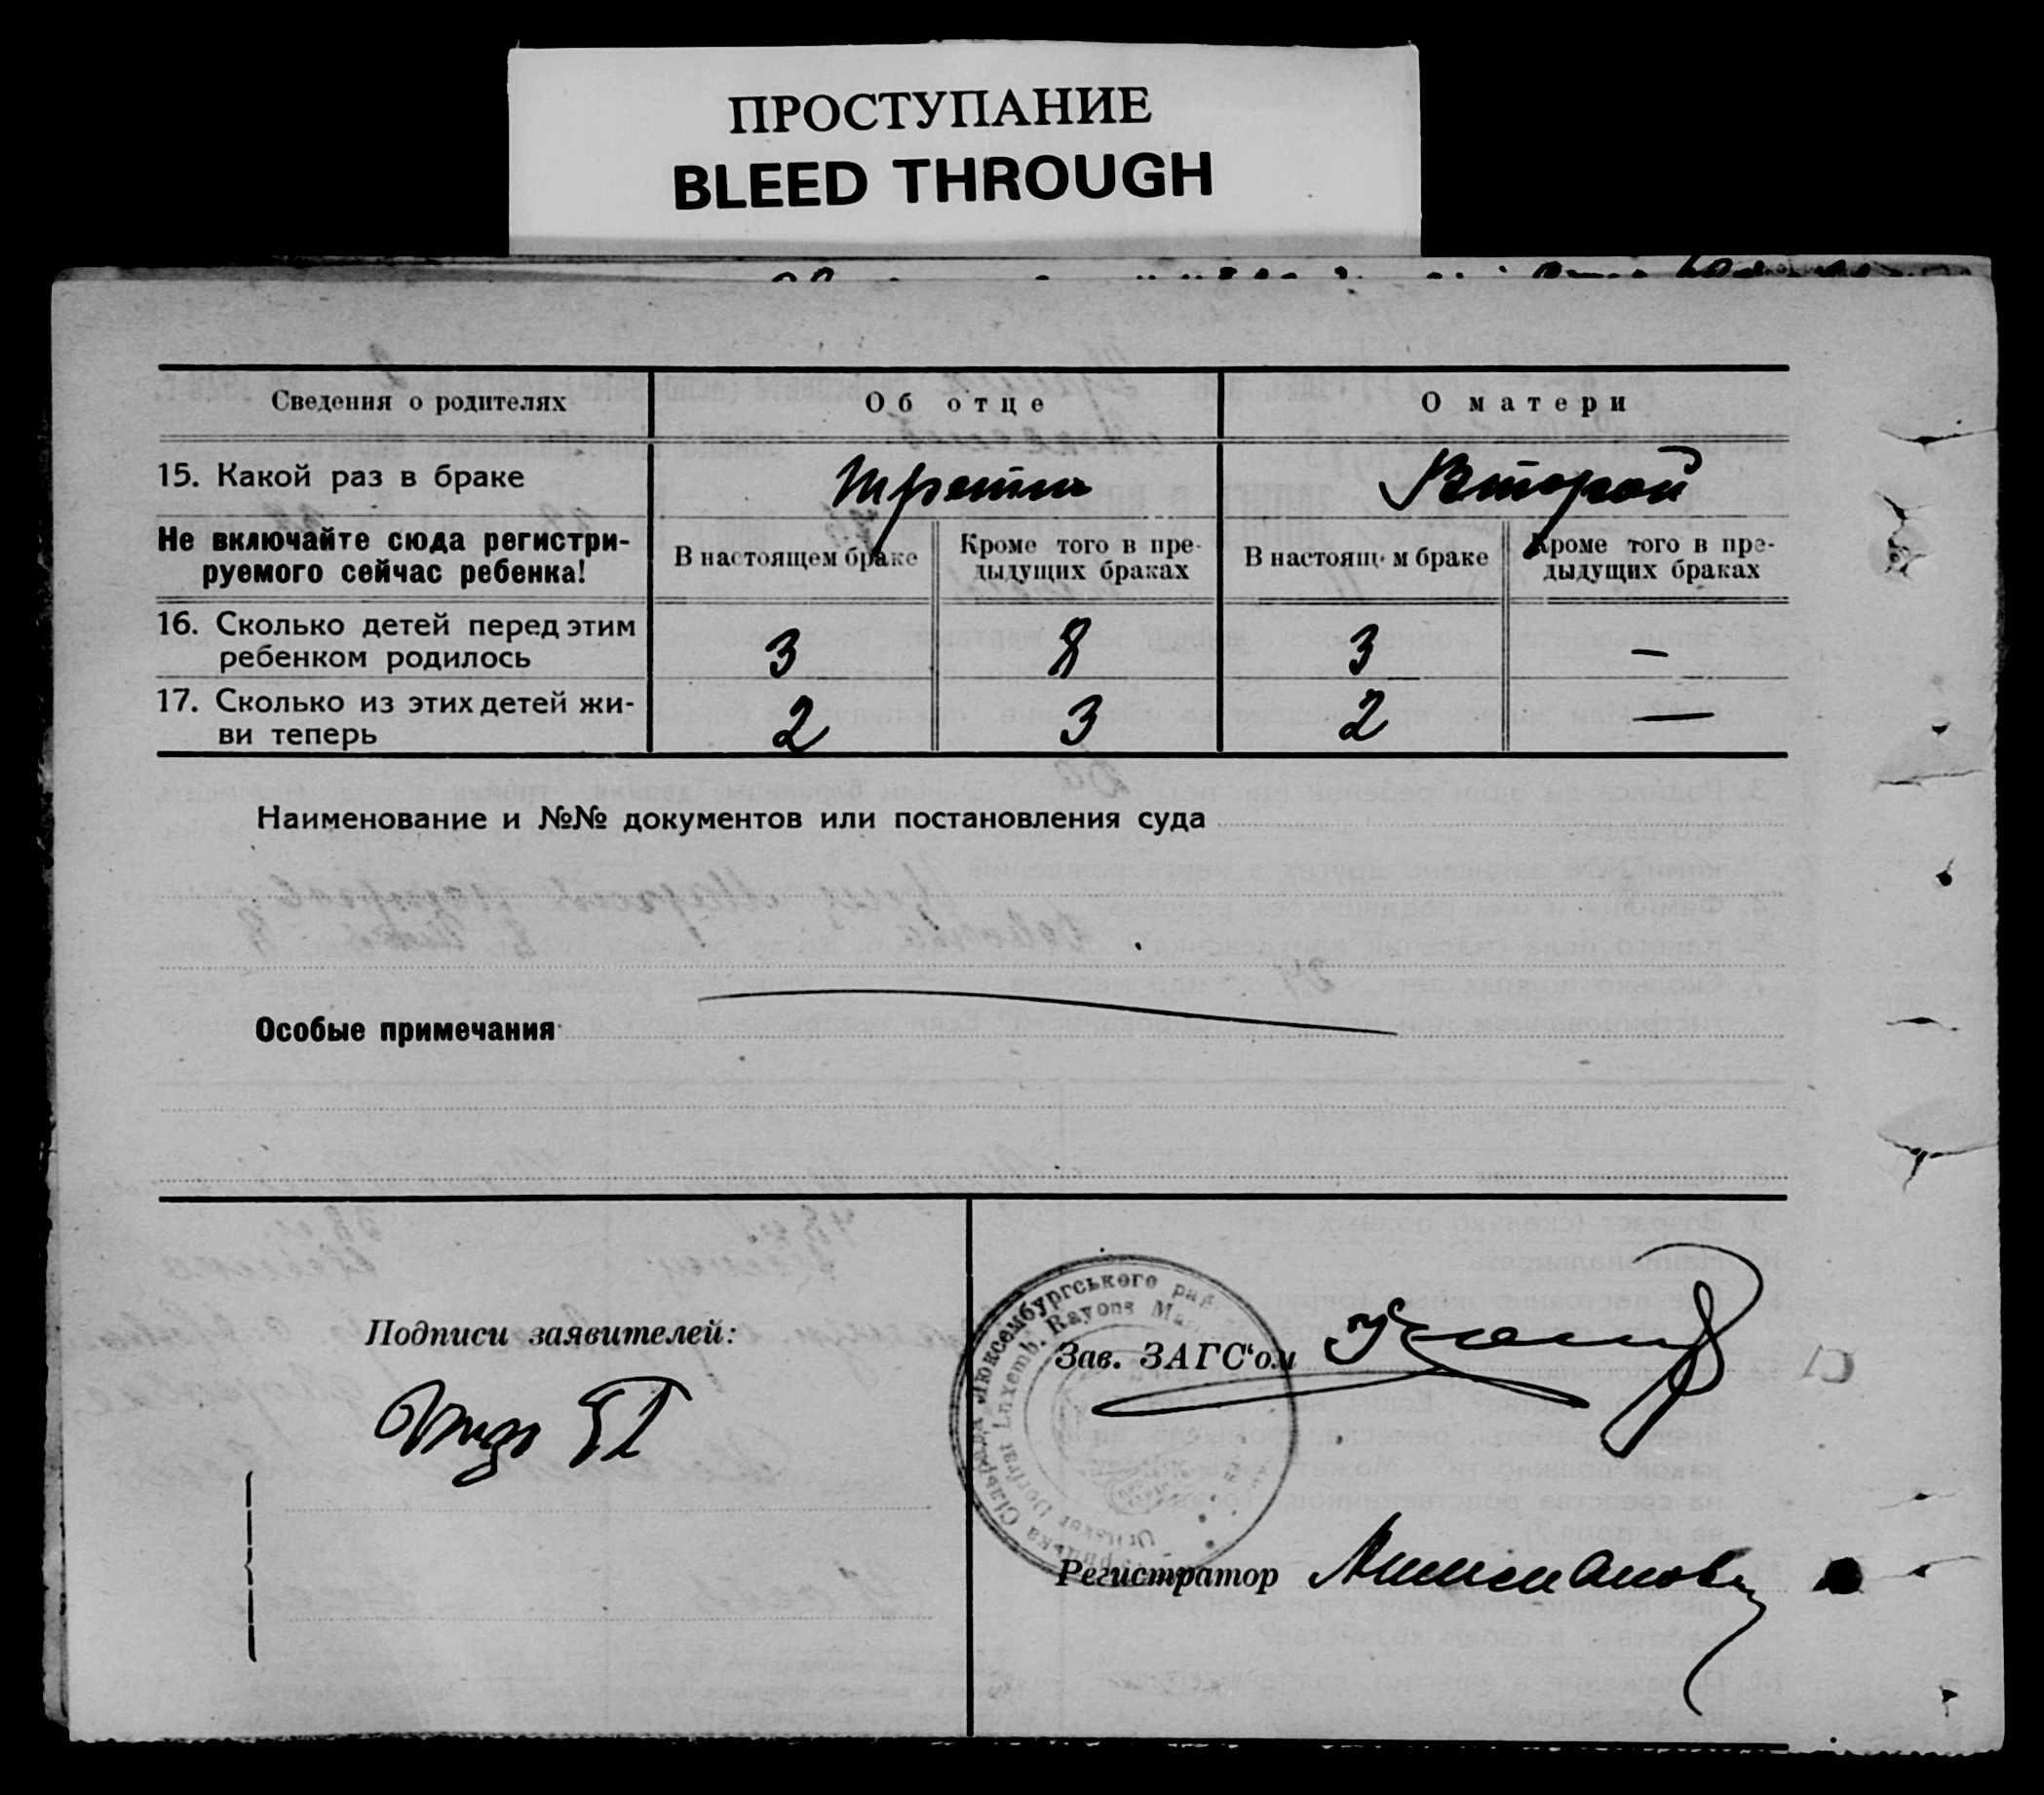 ПРОСТУПАНИЕ
BLEED THROUGH
Сведения о родителях
Об отце
О матери
15. Какой раз в браке
третий
Второй
Не включайте сюда регистри-
руемого сейчас ребенка!
В настоящем браке
Кроме того в пре-
дыдущих браках
В настоящем браке
Кроме того в пре-
дыдущих браках
16. Сколько детей перед этим
ребенком родилось
3
8
3
—
17. Сколько из этих детей жи-
ви теперь
2
3
2
—
Наименование и №№ документов или постановления суда
Особые примечания
Подписи заявителей:
Зав. ЗАГС'ом
Регистратор
Люксембургського рай.
Luxemb. Rayons